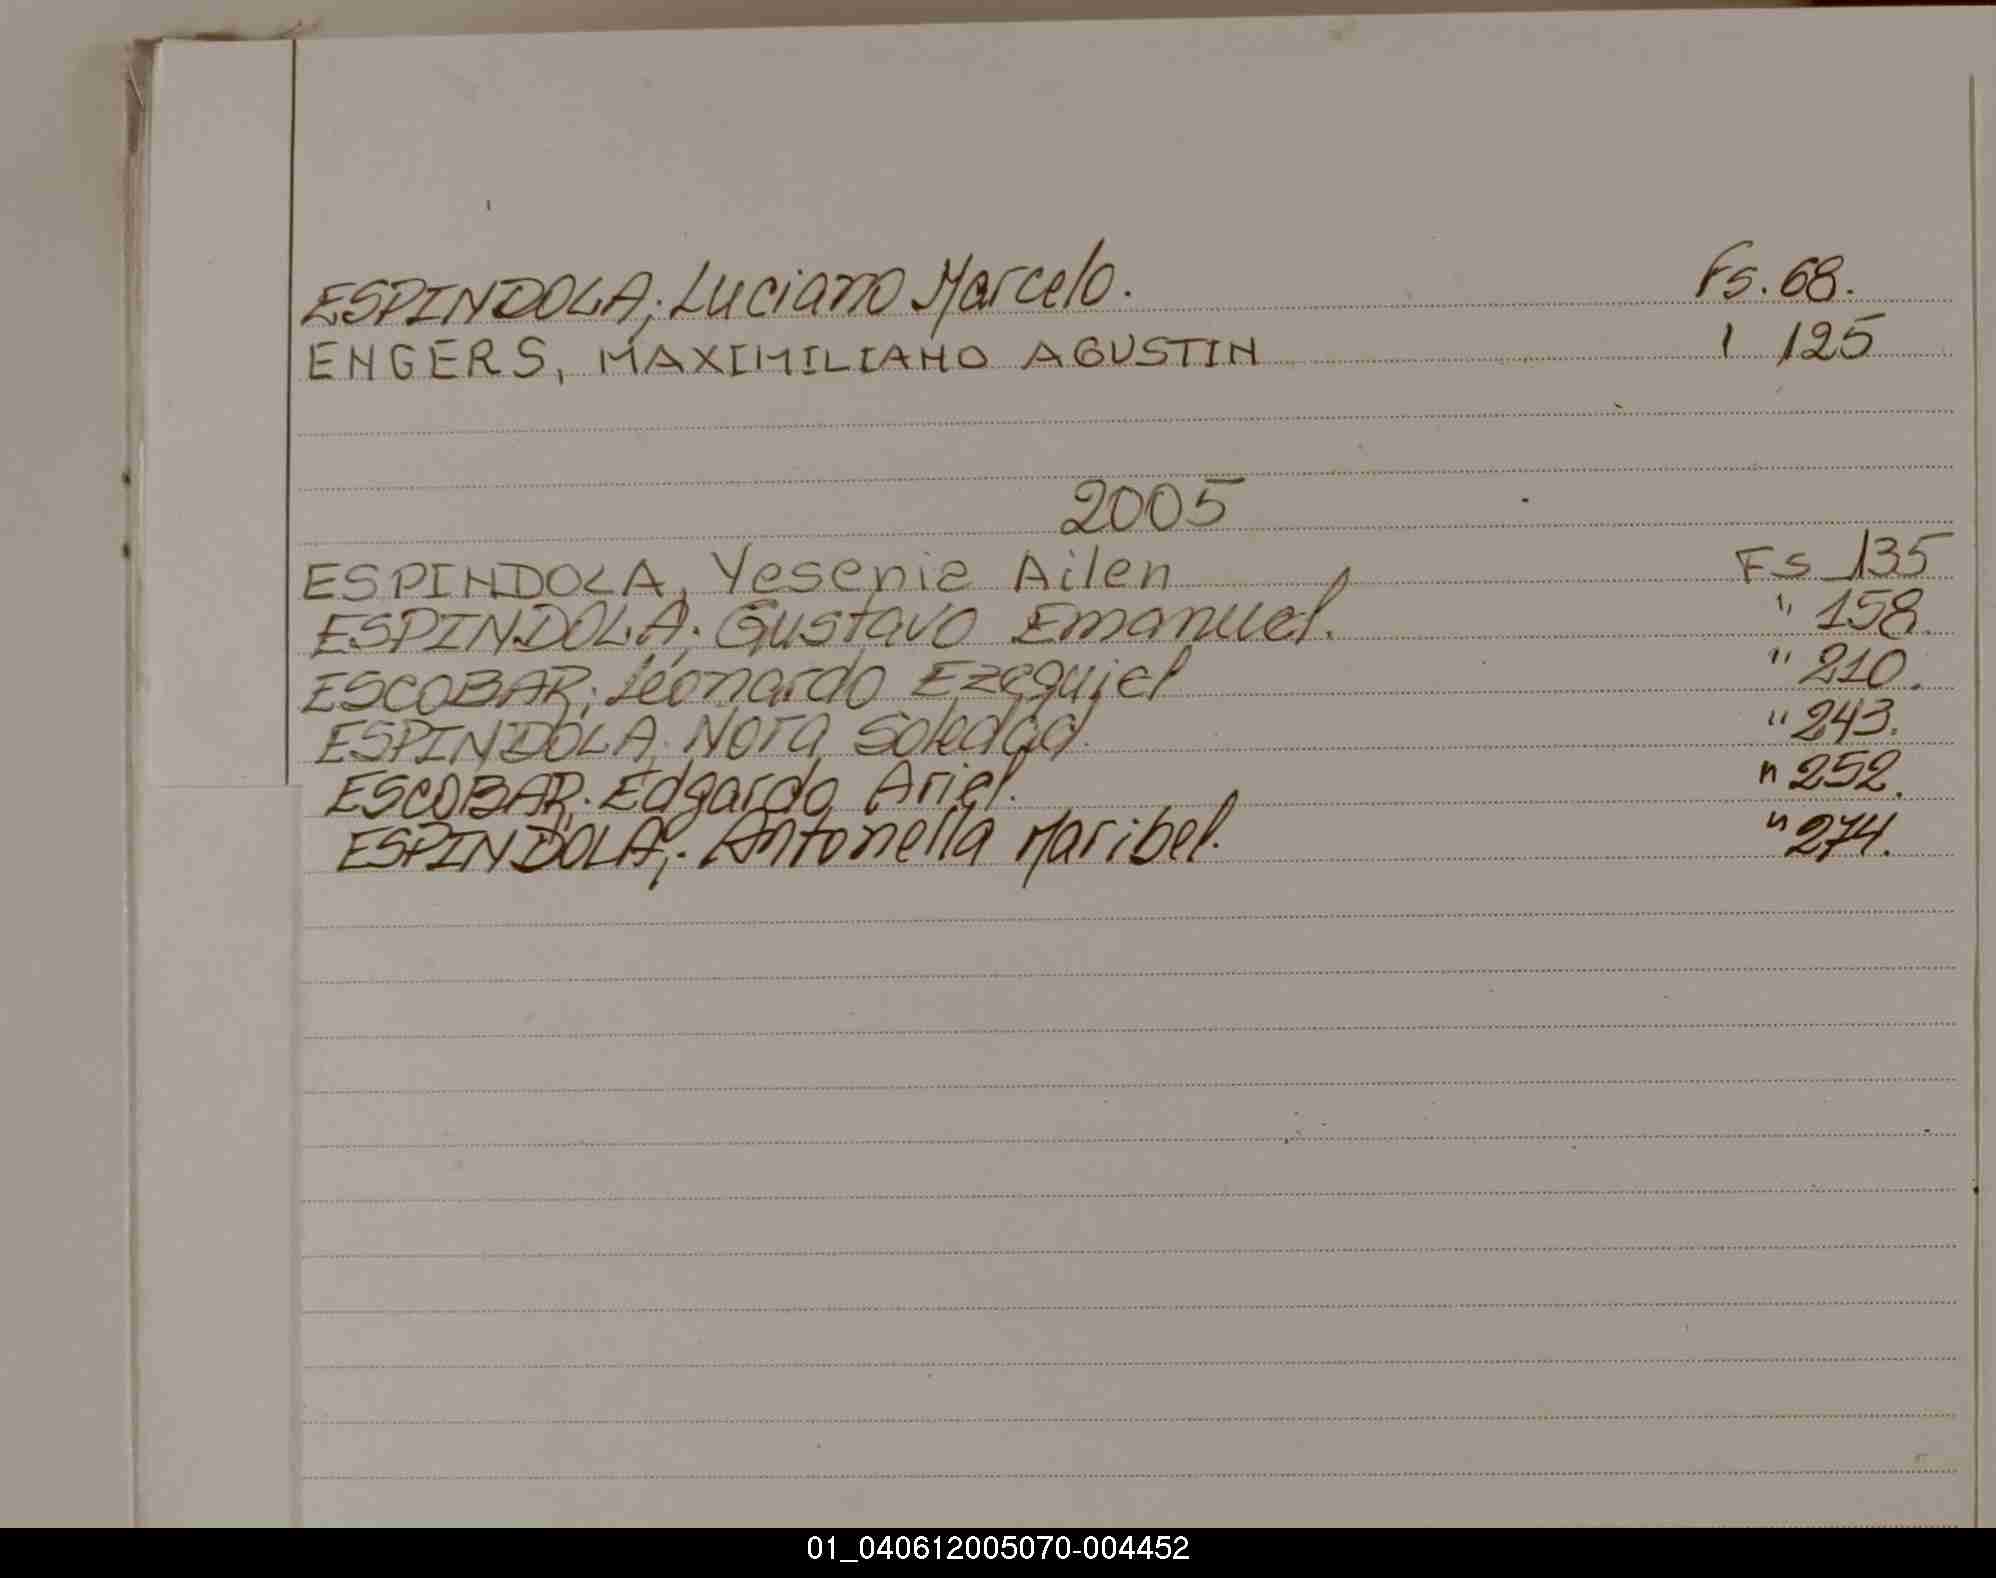 ESPINDOLA; Luciano Marcelo. Fs. 68.
ENGERS, MAXIMILIANO AGUSTIN 1 125
2005
ESPINDOLA, Yesenia Ailen Fs 135
ESPINDOLA; Gustavo Emanuel. " 158.
ESCOBAR; Leonardo Ezequiel " 210.
ESPINDOLA; Nora Soledad. " 243.
ESCOBAR; Edgardo Ariel. " 252.
ESPINDOLA; Antonella Maribel. " 274.
01_040612005070-004452